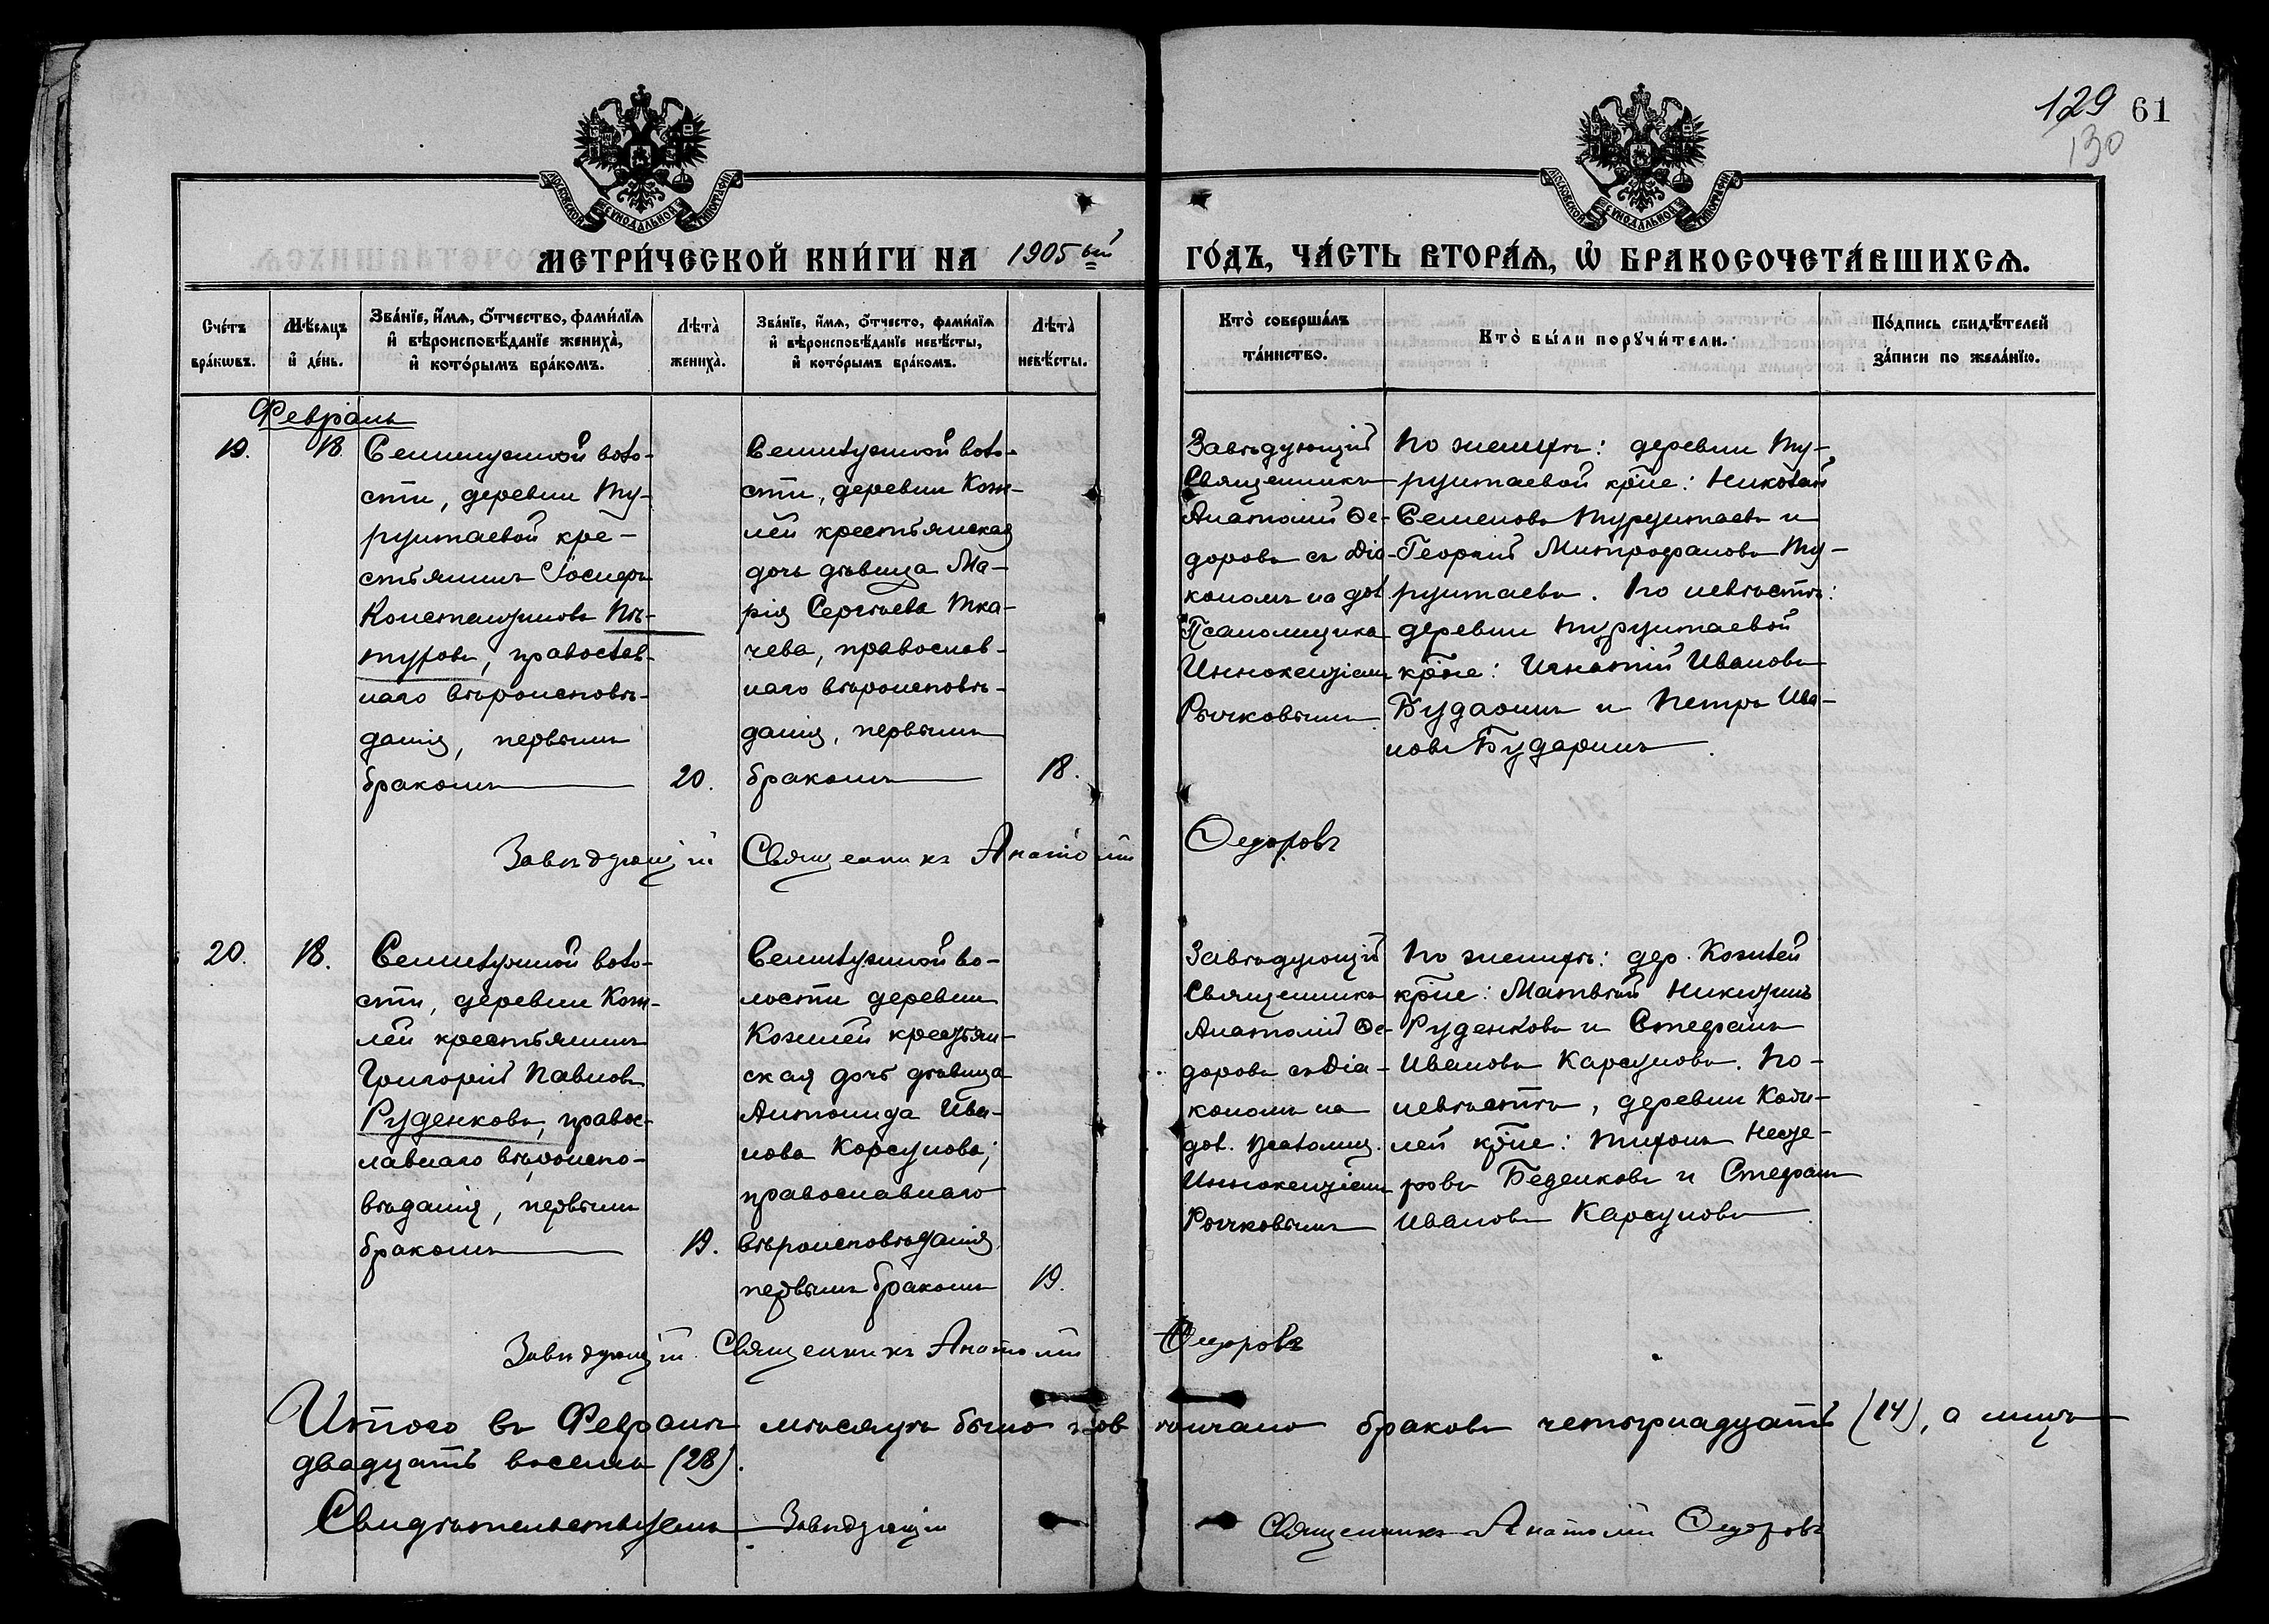 129 61
130
МОСКОВСКОЙ СУНОДАЛЬНОЙ ТИПОГРАФІИ
МОСКОВСКОЙ СУНОДАЛЬНОЙ ТИПОГРАФІИ
МЕТРИ́ЧЕСКОЙ КНИ́ГИ НА 1905 ый ГО́ДЪ, ЧА́СТЬ ВТОРА́Ѧ, Ѽ БРАКОСОЧЕТА́ВШИХСѦ.
Сче́тъ
бра́кѡвъ.
Мѣ́сяцъ
и҆ де́нь.
Зва́нїе, и҆́мѧ, о҆́тчество, фами́лїѧ
и҆ вѣроисповѣ́данїе жениха̀,
и҆ кото́рымъ бра́комъ.
Лѣта̀
жениха̀.
Зва́нїе, и҆́мѧ, о҆́тчесто, фами́лїѧ
и҆ вѣроисповѣ́данїе невѣ́сты,
и҆ кото́рымъ бра́комъ.
Лѣта̀
невѣ́сты.
Кто̀ соверша́лъ
та́инство.
Кто̀ бы́ли порꙋчи́тели.
По́дпись свидѣ́телей
за́писи по жела́нїю.
Февраль
19.
18
Семилужной воло-
сти, деревни Ту-
рунтаевой кре-
стьянинъ Іосифъ
Константиновъ Пѣ-
туховъ, православ-
наго вѣроисповѣ-
данія, первымъ
бракомъ
20.
Семилужной воло-
сти, деревни Кож-
лей крестьянская
дочь дѣвица Ма-
рія Сергѣева Тка-
чева, православ-
наго вѣроисповѣ-
данія, первымъ
бракомъ
18.
Завѣдующій
Священникъ
Анатолій Ѳе-
доровъ съ Діа-
кономъ на дол.
Псаломщика
Иннокентіемъ
Рычковымъ
По женихѣ: деревни Ту-
рунтаевой кр̃не: Николай
Семеновъ Турунтаевъ и
Георгій Митрофановъ Ту-
рунтаевъ. По невѣстѣ:
деревни Турунтаевой
кр̃не: Игнатій Ивановъ
Бударинъ и Петръ Ива-
новъ Бударинъ.
Завѣдующій Священникъ Анатолій Ѳедоровъ
20.
18.
Семилужной воло-
сти, деревни Кож-
лей крестьянинъ
Григорій Павловъ
Руденковъ, правос-
лавнаго вѣроиспо-
вѣданія, первымъ
бракомъ
19.
Семилужной во-
лости деревни
Кожлей крестьян-
ская дочь дѣвица
Антонида Ива-
нова Корсунова,
православнаго
вѣроисповѣданія,
первымъ бракомъ
19.
Завѣдующій
Священникъ
Анатолій Ѳе-
доровъ съ Діа-
кономъ на
дол. Псаломщ.
Иннокентіемъ
Рычковымъ
По женихѣ: дер. Кожлей
кр̃не: Матвѣй Никитинъ
Руденковъ и Стефанъ
Ивановъ Карсуновъ. По-
невѣстѣ, деревни Кож-
лей кр̃не: Тихонъ
Беденковъ и Стефанъ
Ивановъ Карсуновъ.
Завѣдующій Священникъ Анатолій Ѳедоровъ
Итого въ Февралѣ мѣсяцѣ было повѣнчано браковъ четырнадцать (14), а лицъ
двадцать восемь (28).
Свидѣтельствуемъ Завѣдующій Священникъ Анатолій Ѳедоровъ